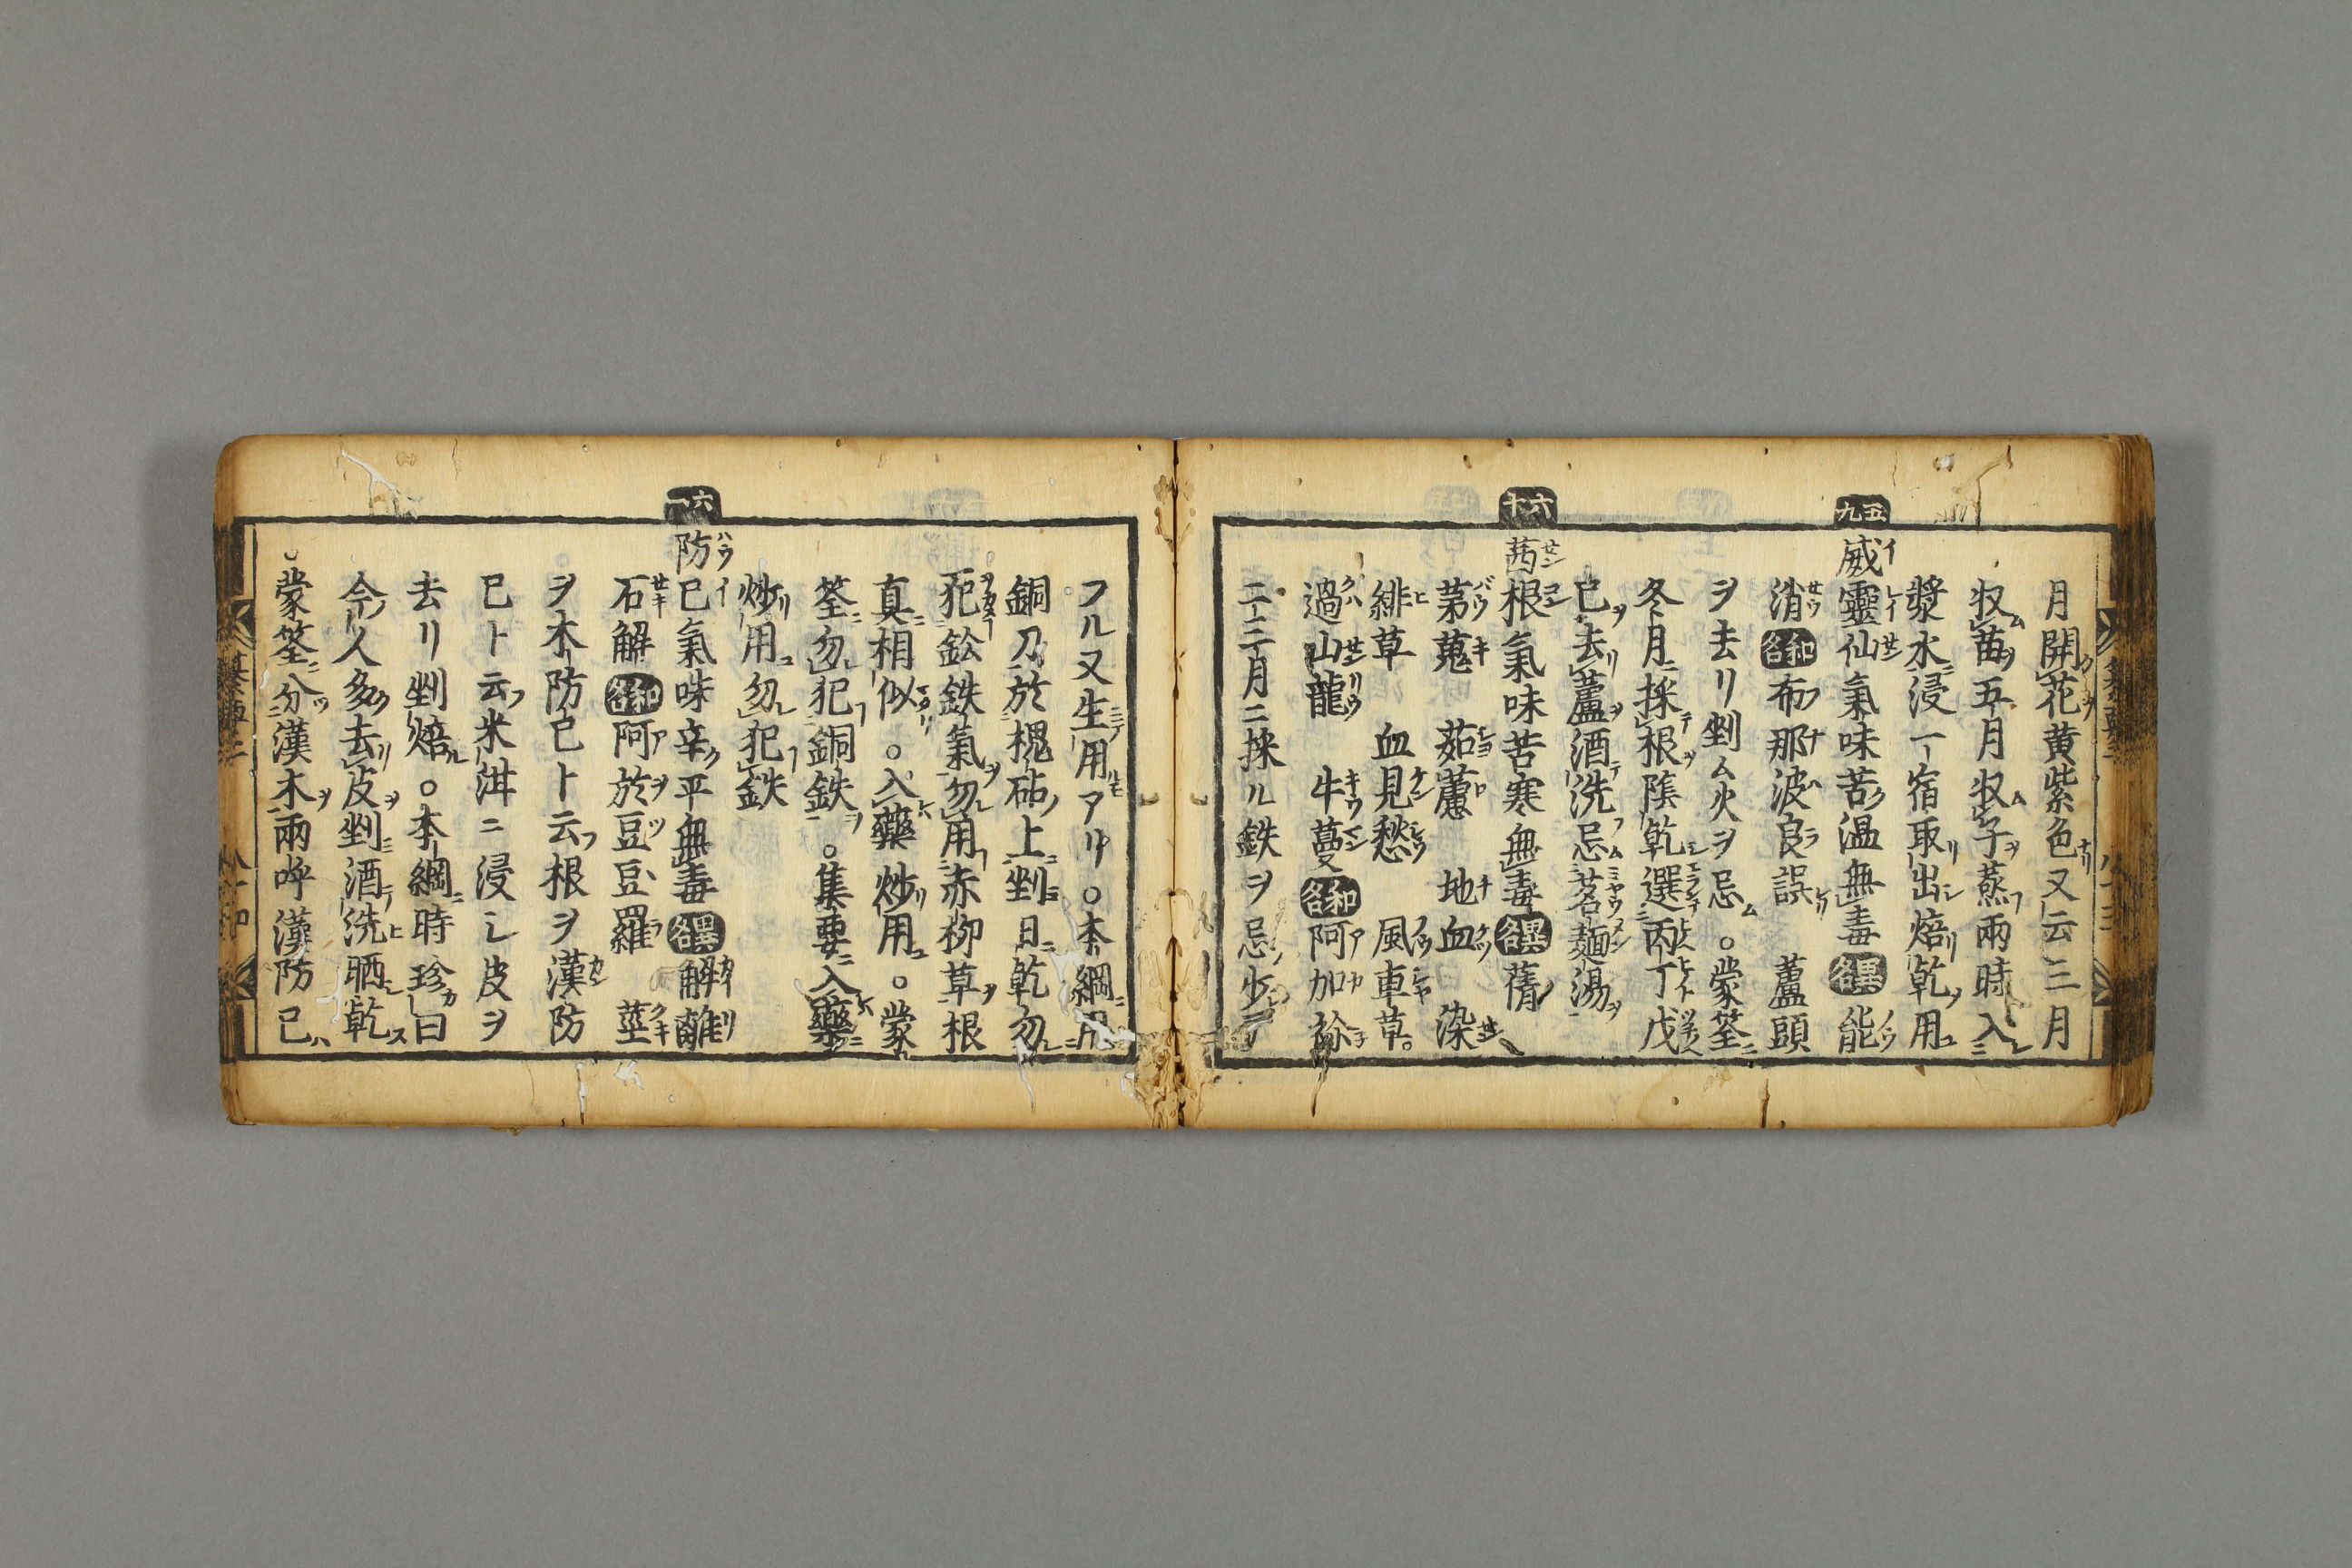 月開花黄紫色又云三月
収苗五月収子蒸兩時入
漿水浸一宿取出焙乾用
五九
威靈仙氣味苦温無毒 異名 能
消 和名 布那波良誤 蘆頭
ヲ去リ剉ム火ヲ忌。蒙筌
冬月採根陰乾選丙丁戊
已去蘆酒洗忌茗麺湯
六十
茜根氣味苦寒無毒 異名 蒨
茅蒐 茹藘 地血 染
緋草 血見愁 風車草
過山龍 牛蔓 和名 阿加祢
二三月ニ採ル鉄ヲ忌
フル又生用アリ。本綱用
銅刀於槐砧上剉日乾勿
犯鈆鉄氣勿用赤柳草根
真相似。入藥炒用。蒙
筌勿犯銅鉄。集要入藥
炒用勿犯鉄
六一
防已氣味辛平無毒 異名 解離
石解 和名 阿於豆豆羅 莖
ヲ木防已ト云根ヲ漢防
已ト云米泔ニ浸シ皮ヲ
去リ剉焙。本綱時珍曰
今人多去皮剉酒洗晒乾
蒙筌分漢木兩呼漢防已